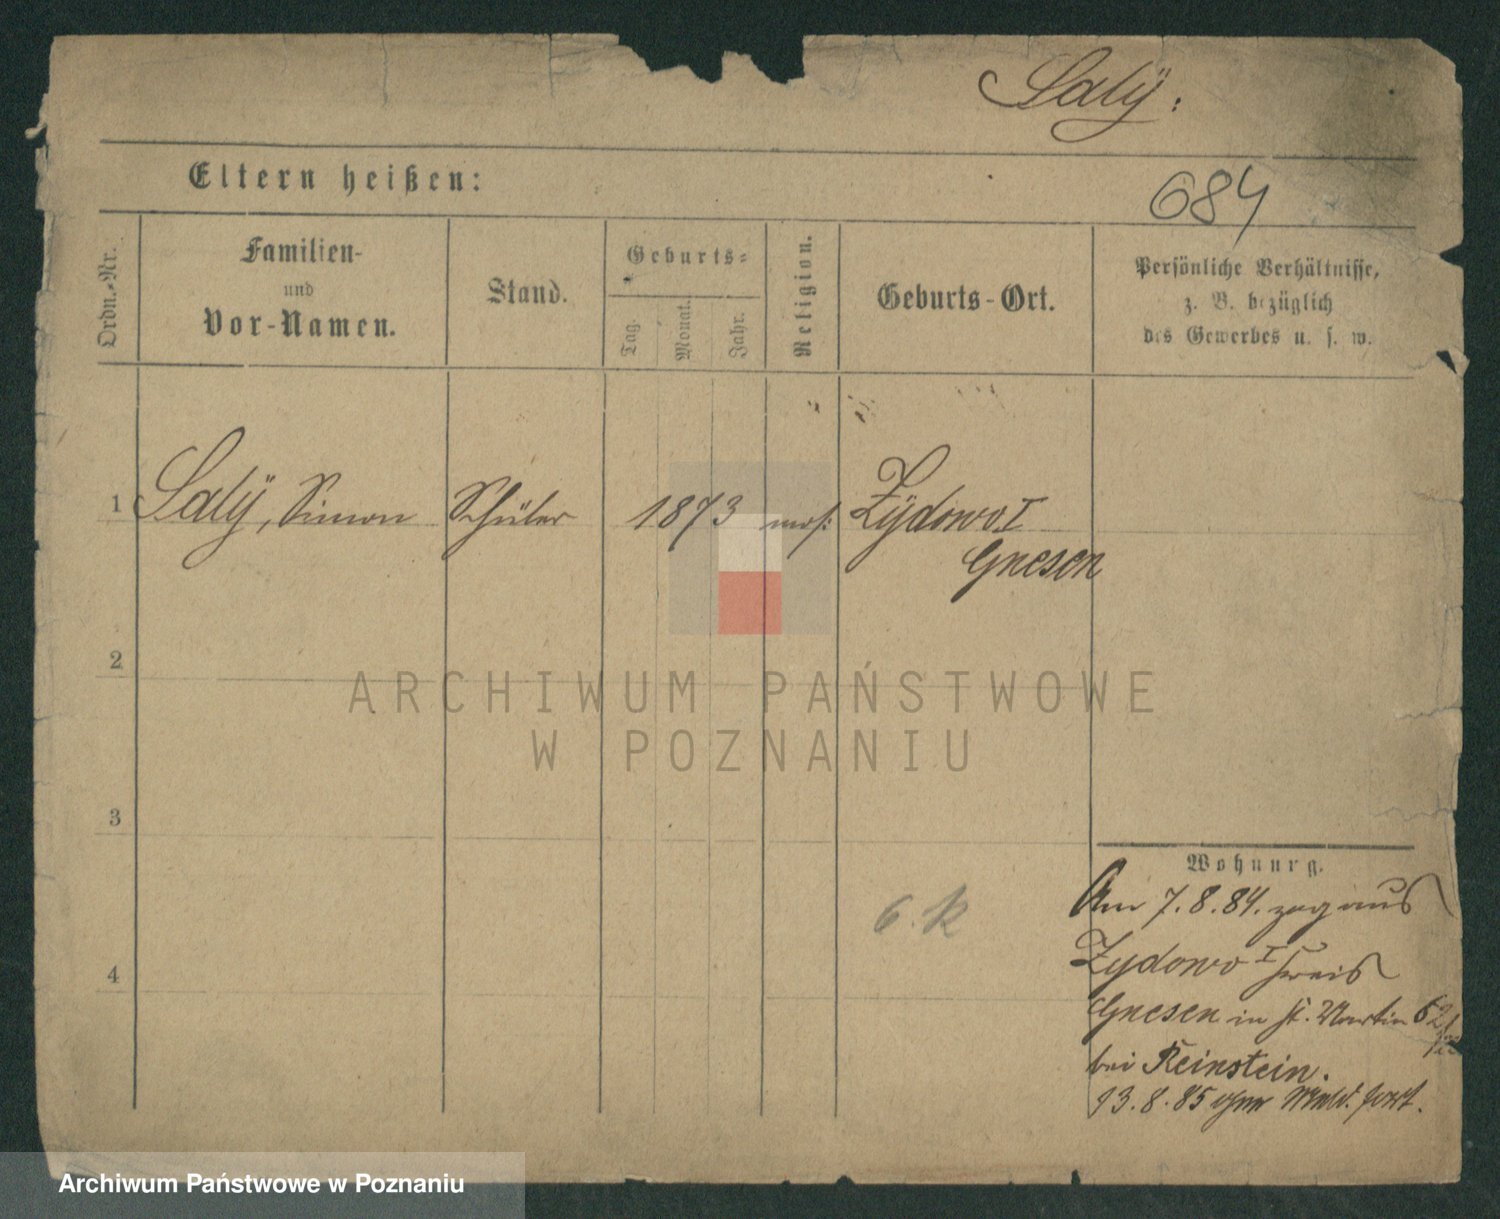 Salÿ.
Eltern heißen:
684
Ordn.-Nr.
Familien-
und
Vor-Namen.
Stand.
Geburts-
Tag.
Monat.
Jahr.
Religion.
Geburts-Ort.
Persönliche Verhältnisse,
z. B. bezüglich
des Gewerbes u. s. w.
1 Salÿ, Simon Schüler 1873 mos: Zÿdowo I
Gnesen
2
ARCHIWUM PAŃSTWOWE
W POZNANIU
3
Wohnung.
6. k
Am 7. 8. 84. zog aus
Zydowo I Kreis
4
Gnesen in St. Martin 62
bei Reinstein.
13. 8. 85 ohne Meld. fort.
Archiwum Państwowe w Poznaniu